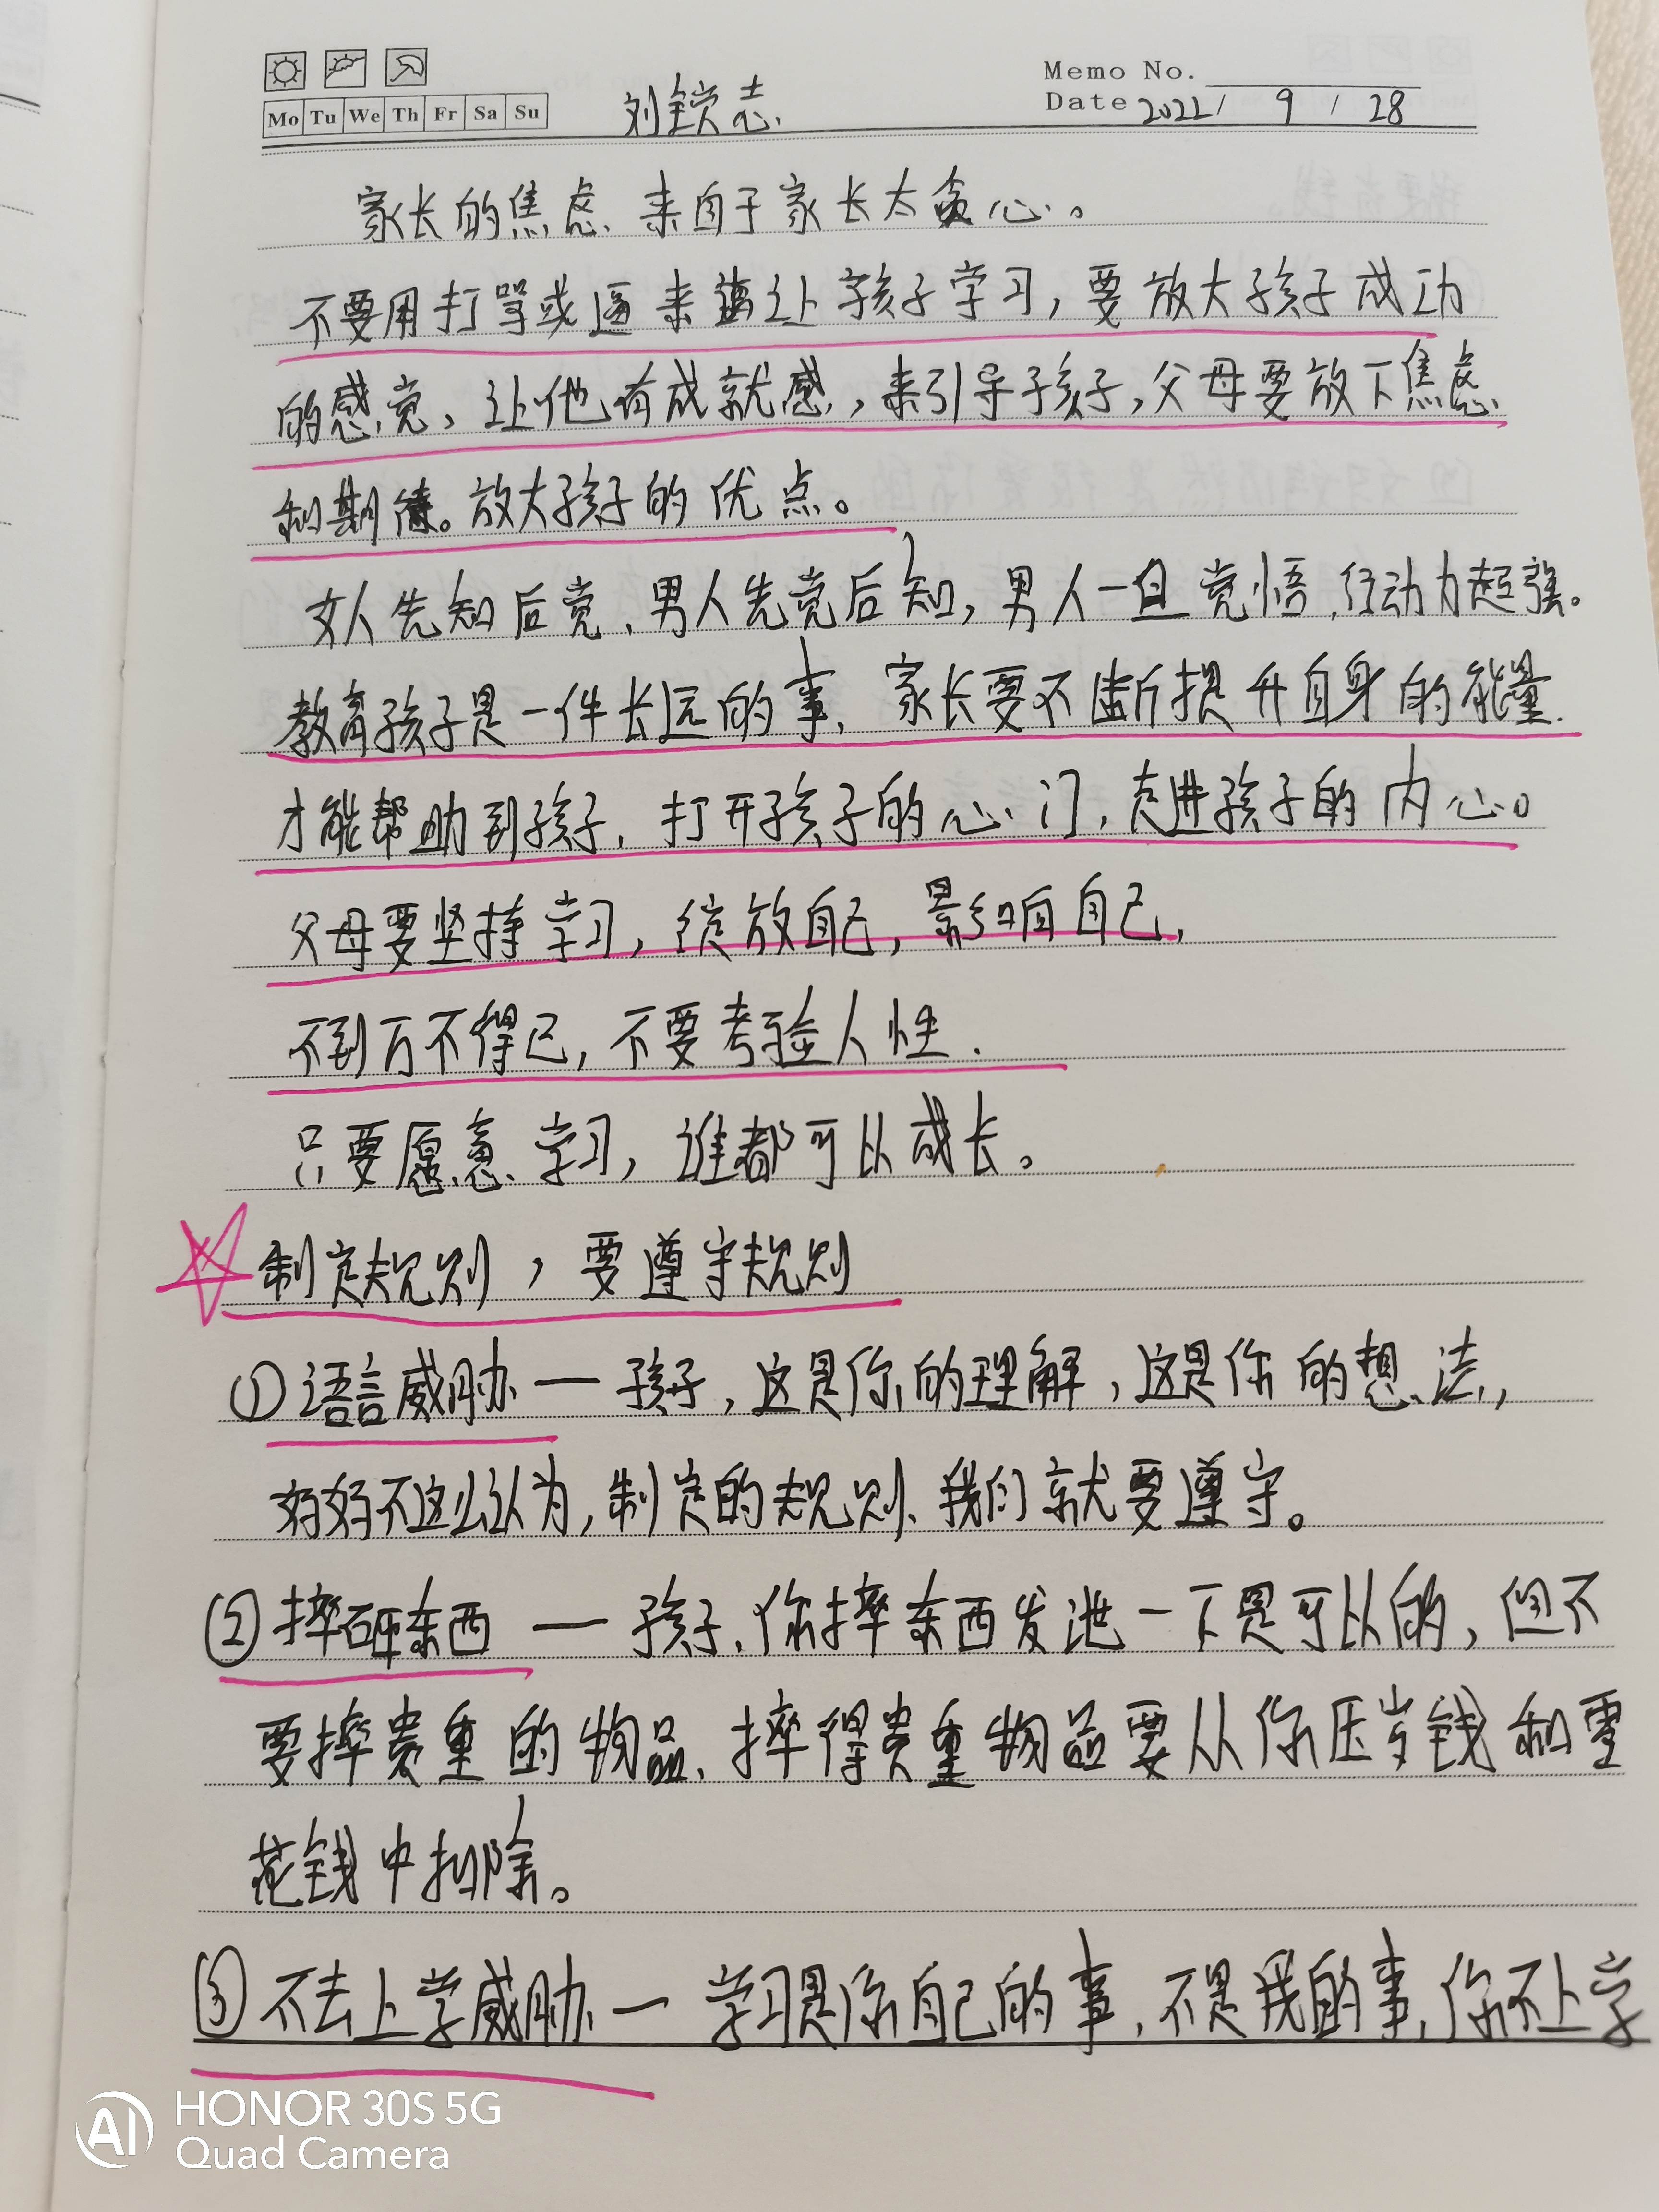 Memo No.
Mo Tu We Th Fr Sa Su
刘锁志
Date 2022 / 9 / 28
家长的焦虑、来自于家长太贪心。
不要用打骂或逼来让孩子学习，要放大孩子成功
的感觉、让他有成就感，来引导孩子，父母要放下焦虑
和期待。放大孩子的优点。
女人先知后觉、男人先觉后知，男人一旦觉悟，行动力超强。
教育孩子是一件长远的事、家长要不断提升自身的能量
才能帮助到孩子，打开孩子的心门，走进孩子的内心。
父母要坚持学习，绽放自己，影响自己，
不到万不得已，不要考验人性.
只要愿意学习，谁都可以成长。
制定规则，要遵守规则
①语言威胁 — 孩子，这是你的理解，这是你的想法，
妈妈不这么认为，制定的规则、我们就要遵守。
②摔砸东西 — 孩子、你摔东西发泄一下是可以的，但不
要摔贵重的物品、摔得贵重物品要从你压岁钱和零
花钱中扣除。
③不去上学威胁 — 学习是你自己的事，不是我的事，你不上学
AI
HONOR 30S 5G
Quad Camera